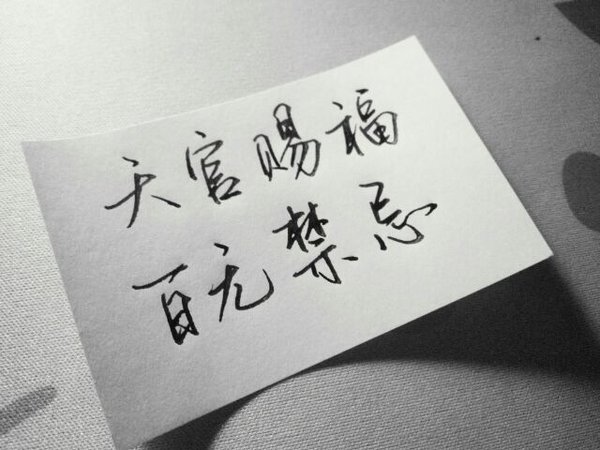 天官赐福
百无禁忌